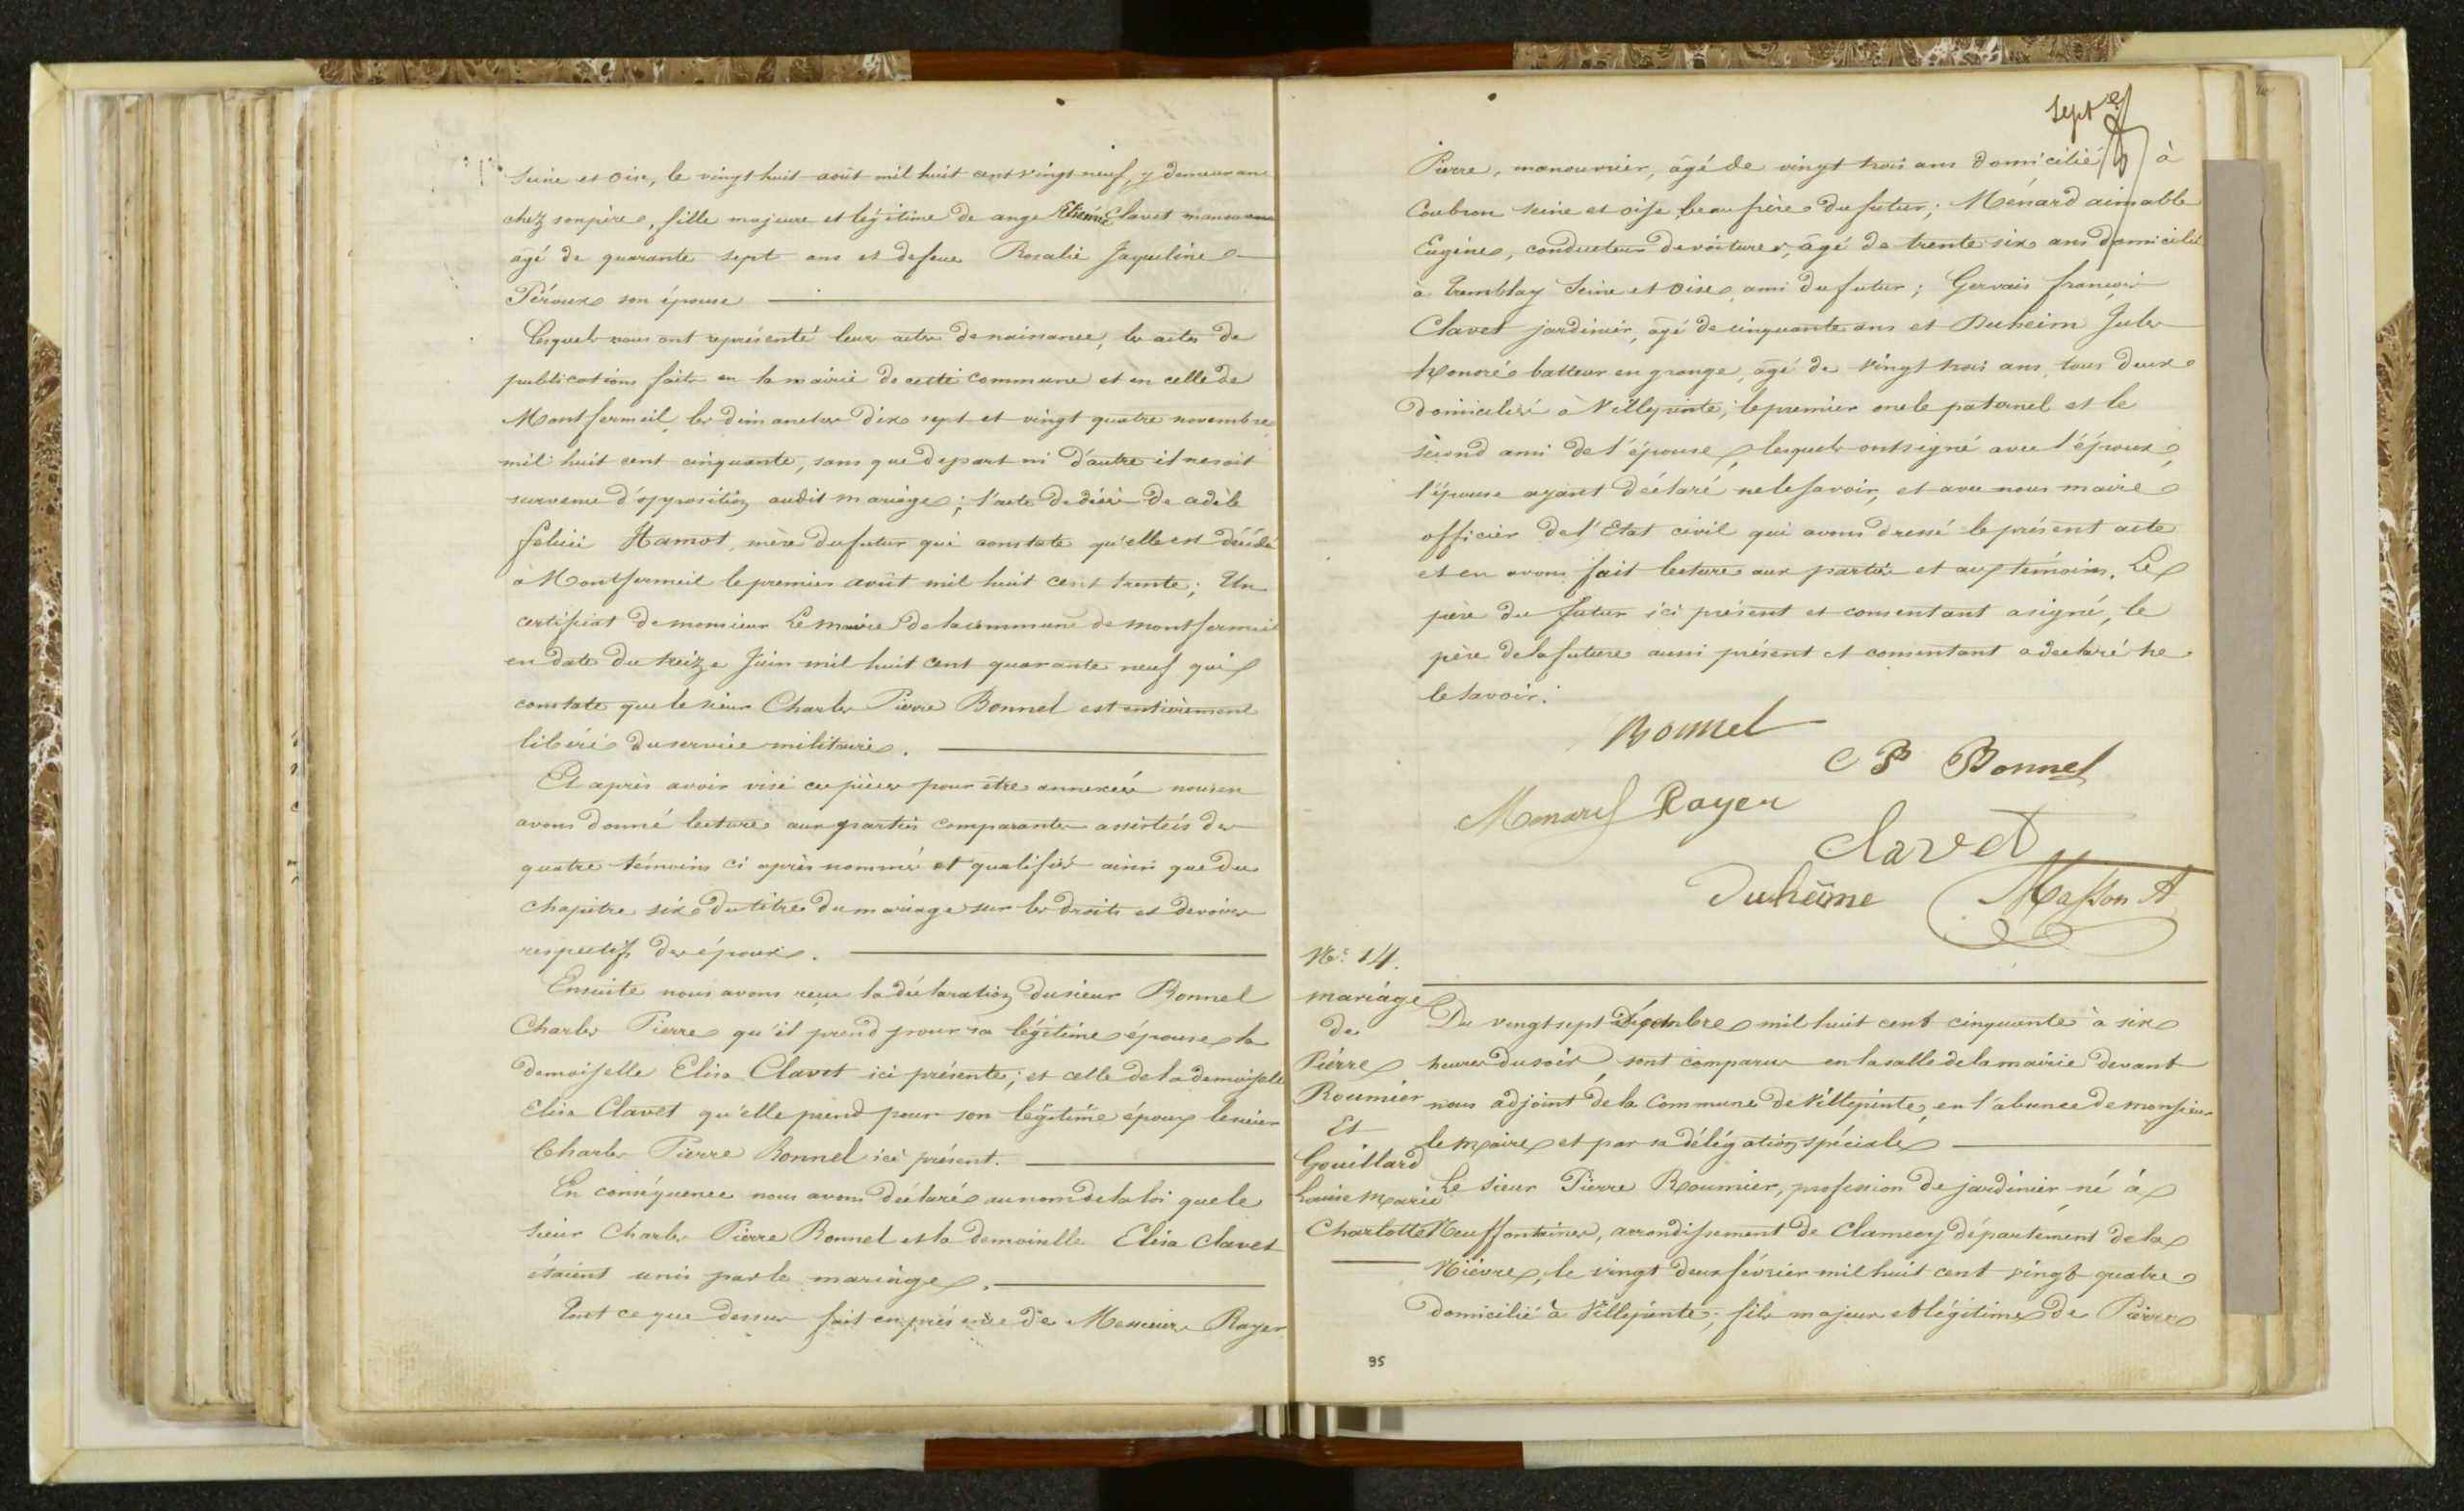 Seine et Oise, le vingt huit août mil huit cent vingt neuf, y demeurant
chez son père, fille majeure et légitime de ange Etienne Clavet manouvrier
âgé de quarante sept ans et defeue Rosalie Jaqueline
Péroux son épouse
Lesquels nous ont représenté leurs actes de naissance, les actes de
publications faits en la mairie de cette commune et en celle de
Montfermeil, les dimanches dix sept et vingt quatre novembre
mil huit cent cinquante, sans que depart ni d'autre il nesoit
survenu d'opposition audit mariage; l'acte de décès de adèle
felicie Hamot, mère du futur qui constate qu'elle est décédée
à Montfermeil le premier août mil huit cent trente; Un
certificat de monsieur Le maire de la commune de montfermeil
en date du treize Juin mil huit cent quarante neuf qui
constate que le sieur Charles Pierre Bonnel est entièrement
libéré du service militaire.
Et après avoir visé ces pièces pour être annexées nous en
avons donné lecture aux parties comparantes assistées des
quatre témoins ci après nommés et qualifiés ainsi que du
chapitre six du titre du mariage sur les droits et devoirs
respectifs des époux.
Ensuite nous avons reçu la déclaration du sieur Bonnel
Charles Pierre qu'il prend pour sa légitime épouse la
demoiselle Elisa Clavet ici présente; et celle de la demoiselle
Elisa Clavet qu'elle prend pour son légitime époux le sieur
Charles Pierre Bonnel ici présent.
En conséquence nous avons déclaré au nom de la loi que le
sieur Charles Pierre Bonnel et la demoiselle Elisa Clavet
étaient unis par le mariage.
Tout ce que dessus fait en présence de Messieurs Rayer
Sept
Pierre, manouvrier, âgé de vingt trois ans domicilié à
Coubron Seine et oise, beau frère du futur; Ménard aimable
Eugène, conducteur de voitures, âgé de trente six ans domicilié
à Tremblay Seine et Oise, ami du futur; Gervais françois
Clavet jardinier, âgé de cinquante ans et Duheim Jules
honoré batteur en grange, âgé de vingt trois ans, tous deux
domiciliés à Villepinte, le premier oncle paternel et le
second ami de l'épouse, lesquels ont signé avec l'époux,
l'épouse ayant déclaré ne le savoir, et avec nous maire
officier de l'Etat civil qui avons dressé le présent acte
et en avons fait lecture aux parties et aux témoins. Le
père du futur ici présent et consentant a signé, le
père de la future aussi présent et consentant a déclaré ne
le savoir.
Bonnel
C P Bonnel
Menard Rayer
Clavet
Duheime Masson A
No: 14.
mariage
de
Pierre
Roumier
Et
Gouillard
Louise Marie
Charlotte
Du vingt sept Décembre mil huit cent cinquante à six
heures du soir, sont comparus en la salle de la mairie devant
nous adjoint de la Commune de Villepinte, en l'absence de monsieur
le maire et par sa délégation spéciale
Le sieur Pierre Roumier, profession de jardinier né à
Neuffontaines, arrondissement de Clamecy département de la
Nièvre, le vingt deux février mil huit cent vingt quatre
domicilié à Villepinte, fils majeur et légitime de Pierre
95